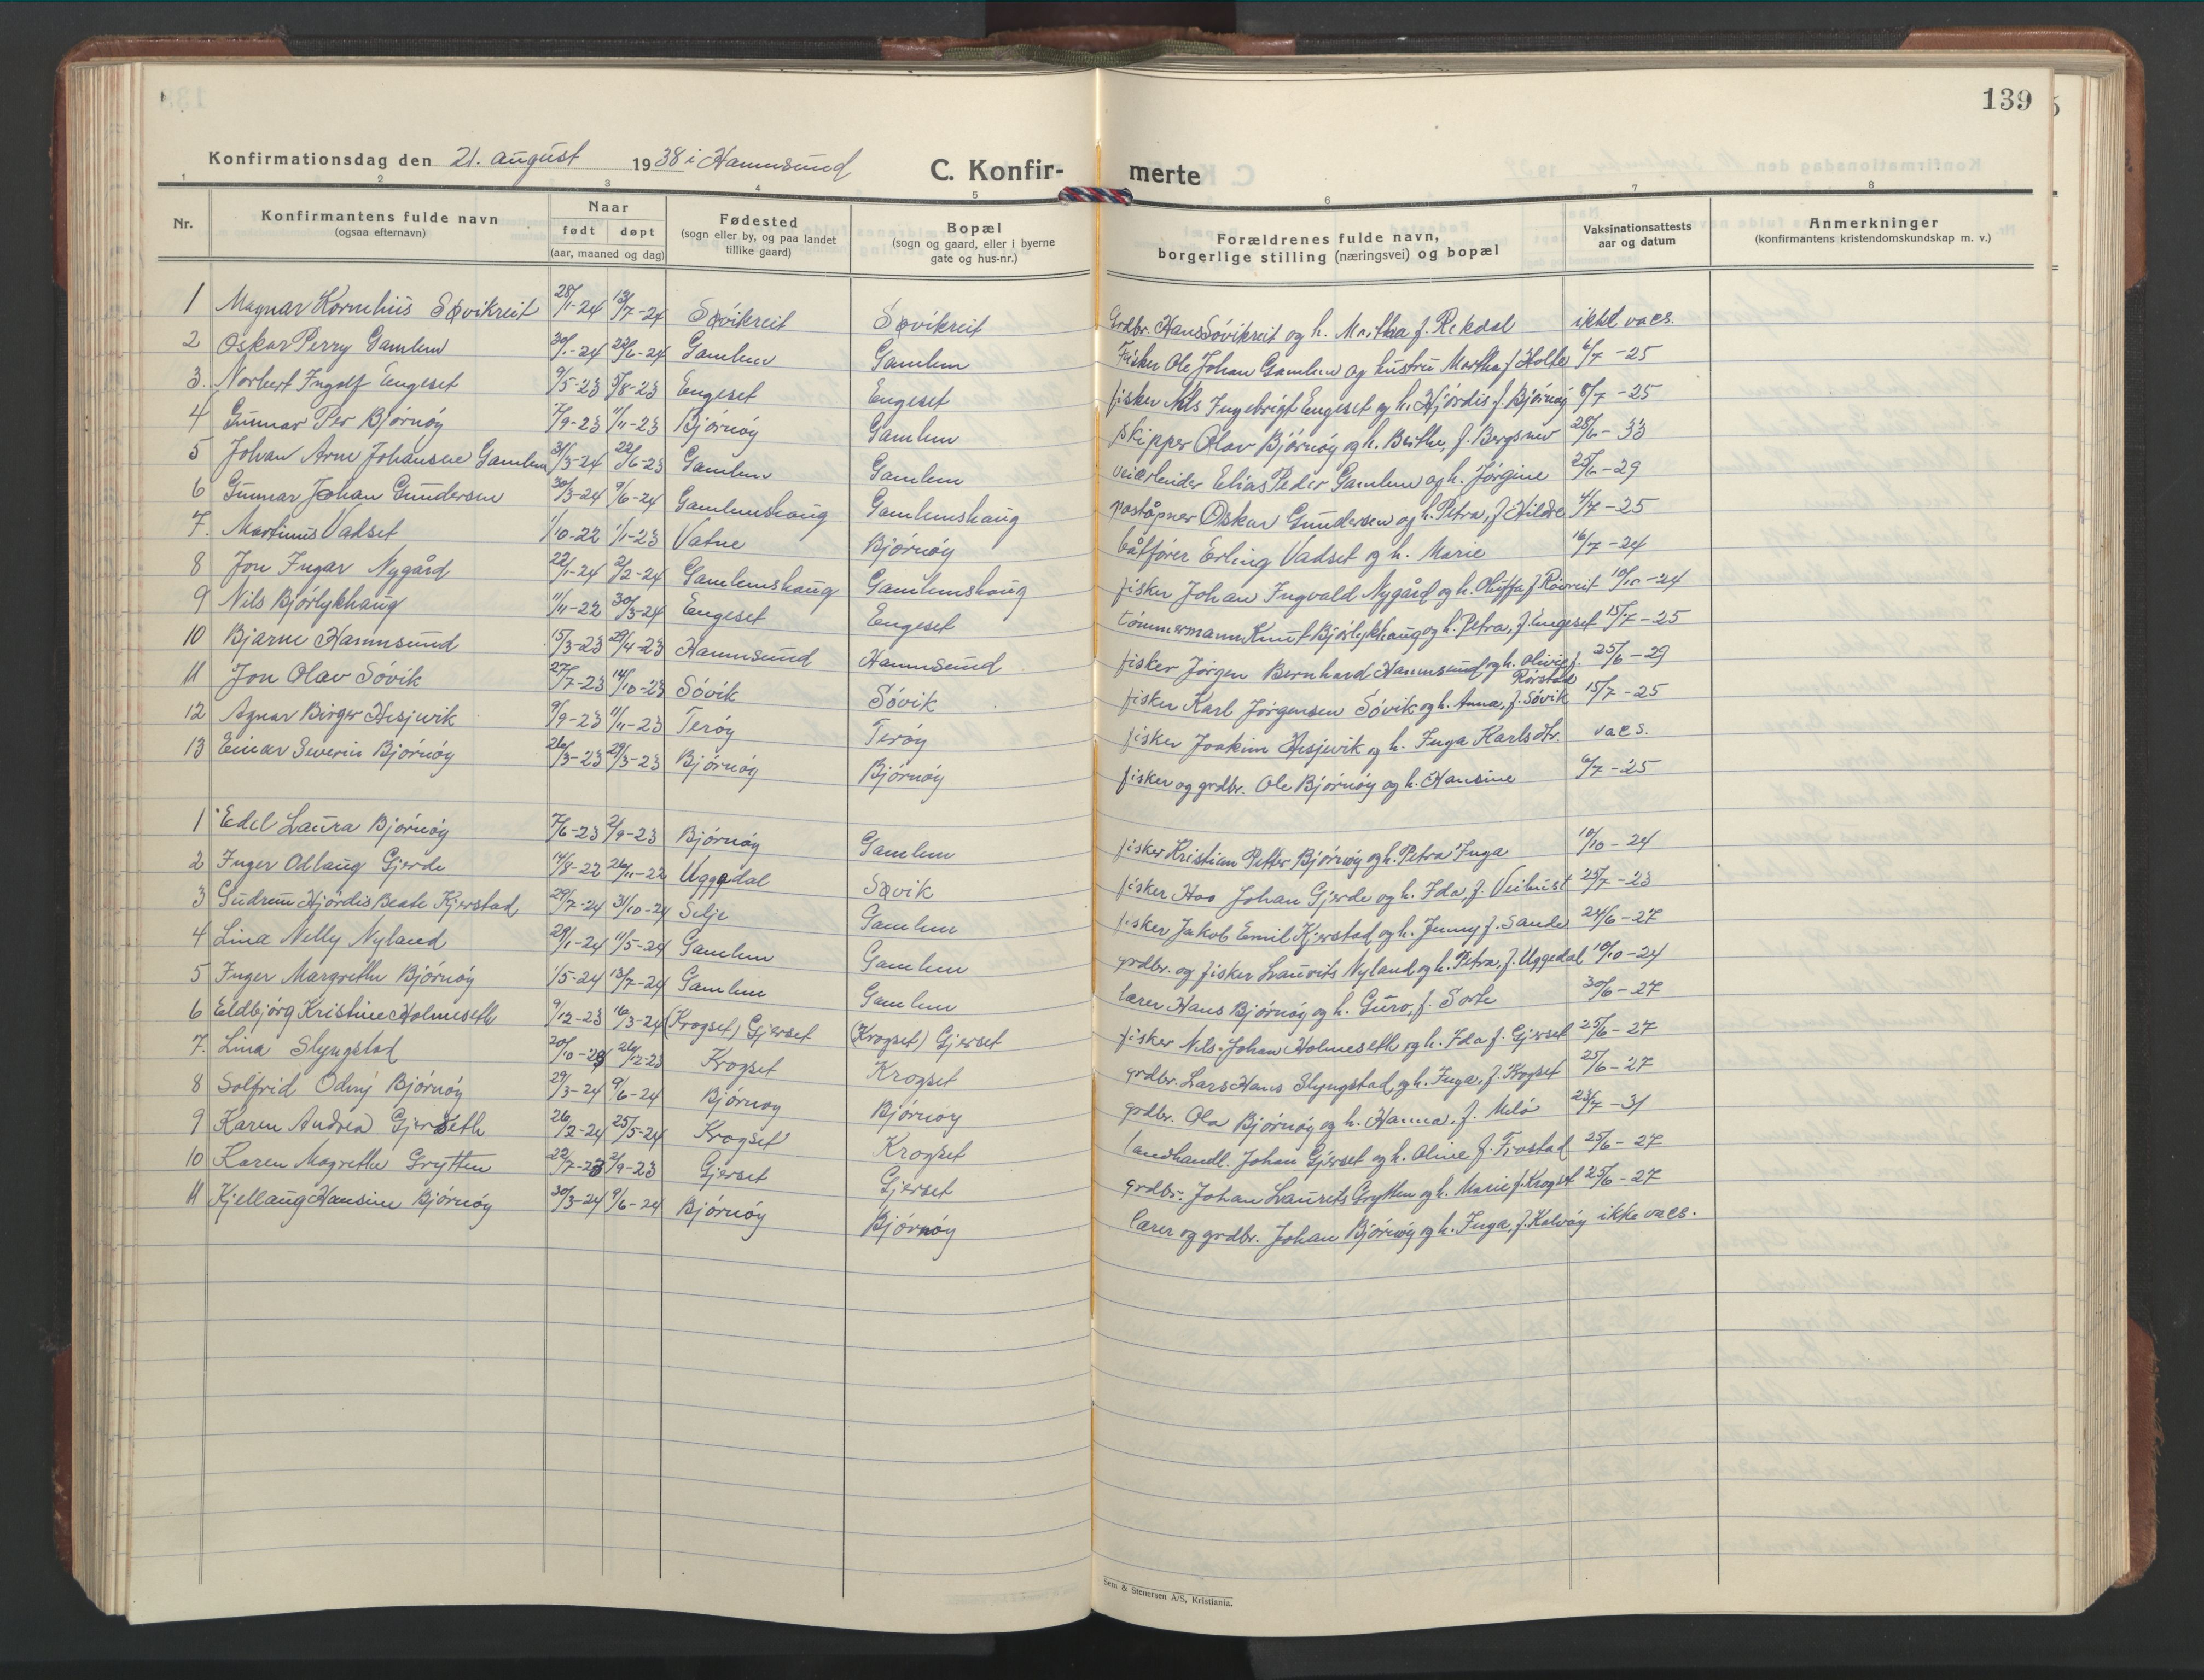 139
Konfirmationsdag den 21. august 1938 i Hamnsund
C. Konfir- merte
1 2 3 4 5 6 7 8
Nr.
Konfirmantens fulde navn
(ogsaa efternavn)
Naar
født døpt
(aar, maaned og dag)
Fødested
(sogn eller by, og paa landet
tillike gaard)
Bopæl
(sogn og gaard, eller i byerne
gate og hus-nr.)
Forældrenes fulde navn,
borgerlige stilling (næringsvei) og bopæl
Vaksinationsattests
aar og datum
Anmerkninger
(konfirmantens kristendomskundskap m. v.)
1 Magnar Kornelius Søvikreit 28/1-24 13/7-24 Søvikreit Søvikreit Grdbr. Hans Søvikreit og h. Martha f. Rekdal ikke vacs.
2 Oskar Perry Gamlem 30/1-24 22/6-24 Gamlem Gamlem Fisker Ole Johan Gamlem og hustru Martha f. Holte 6/7-25
3. Norbert Ingolf Engeset 9/5-23 5/8-23 Engeset Engeset fisker Nils Ingebrigt Engeset og h. Hjørdis f. Bjørnøy 8/7-25
4 Gunnar Per Bjørnøy 17/9-23 11/11-23 Bjørnøy Gamlem skipper Olav Bjørnøy og h. Berthe, f. Bergsnev 28/6-33
5 Johan Arne Johansen Gamlem 31/3-24 22/6-23 Gamlem Gamlem veiarbeider Elias Peder Gamlem og h. Jørgine 25/6-29
6 Gunnar Johan Gundersen 30/3-24 9/6-24 Gamlemshaug Gamlemshaug poståpner Oskar Gundersen og h. Petra, f. Hildre 4/7-25
7. Martinus Vadset 1/10-22 1/1-23 Vatne Bjørnøy båtfører Erling Vadset og h. Marie 16/7-24
8 Jon Ingar Nygård 22/1-24 21/2-24 Gamlemshaug Gamlemshaug fisker Johan Ingvald Nygård og h. Oluffa f. Røvreit 10/10-24
9 Nils Bjørlykhaug 11/11-22 30/3-24 Engeset Engeset tømmermann Knut Bjørlykhaug og h. Petra, f. Engeset 15/7-25
10 Bjarne Hamnsund 15/3-23 29/4-23 Hamnsund Hamnsund fisker Jørgen Bernhard Hamnsund og h. Olivie f. Rørstad 25/6-29
11 Jon Olav Søvik 27/7-23 14/10-23 Søvik Søvik fisker Karl Jørgensen Søvik og h. Anna, f. Søvik 15/7-25
12 Agnar Birger Hesjevik 9/9-23 11/11-23 Terøy Terøy fisker Joakim Hesjevik og h. Inga Karlsdtr. vacs.
13 Einar Severin Bjørnøy 26/3-23 29/3-23 Bjørnøy Bjørnøy fisker og grdbr. Ole Bjørnøy og h. Hansine 6/7-25
1 Edel Laura Bjørnøy 7/6-23 2/9-23 Bjørnøy Gamlem fisker Kristian Petter Bjørnøy og h. Petra Inga 10/10-24
2 Inger Odlaug Gjerde 14/8-22 26/11-22 Uggedal Søvik fisker Johan Gjerde og h. Ida, f. Veibust 25/7-23
3 Gudrun Hjørdis Beate Kjerstad 29/7-24 31/10-24 Selje Gamlem fisker Jakob Emil Kjerstad og h. Jenny f. Sande 24/6-27
4 Lina Nelly Nyland 29/1-24 11/5-24 Gamlem Gamlem grdbr. og fisker Lauvits Nyland og h. Petra, f. Uggedal 10/10-24
5 Inger Margrethe Bjørnøy 1/5-24 13/7-24 Gamlem Gamlem lærer Hans Bjørnøy og h. Guro, f. Sorte 30/6-27
6 Eldbjørg Kristine Holmeseth 9/12-23 16/3-24 (Krogset) Gjerset (Krogset) Gjerset fisker Nils Johan Holmeseth og h. Ida f. Gjerset 25/6-27
7. Lina Slyngstad 20/10-23 26/12-23 Krogset Krogset grdbr. Lars Hans Slyngstad og h. Inga, f. Krogset 25/6-27
8 Solfrid Odny Bjørnøy 29/3-24 9/6-24 Bjørnøy Bjørnøy grdbr. Ola Bjørnøy og h. Hanna, f. Melø 23/7-31
9 Karen Andrea Gjerseth 26/2-24 25/5-24 Krogset Krogset landhandl. Johan Gjerset og h. Oline f. Frostad 25/6-27
10 Karen Magrethe Grytten 22/7-23 2/9-23 Gjerset Gjerset grdbr. Johan Laurits Grytten og h. Marie f. Krogset 25/6-27
11 Kjellaug Hansine Bjørnøy 30/3-24 9/6-24 Bjørnøy Bjørnøy lærer og grdbr. Johan Bjørnøy og h. Inga, f. Kalvøy ikke vacs.
Sem & Stenersen A/S, Kristiania.